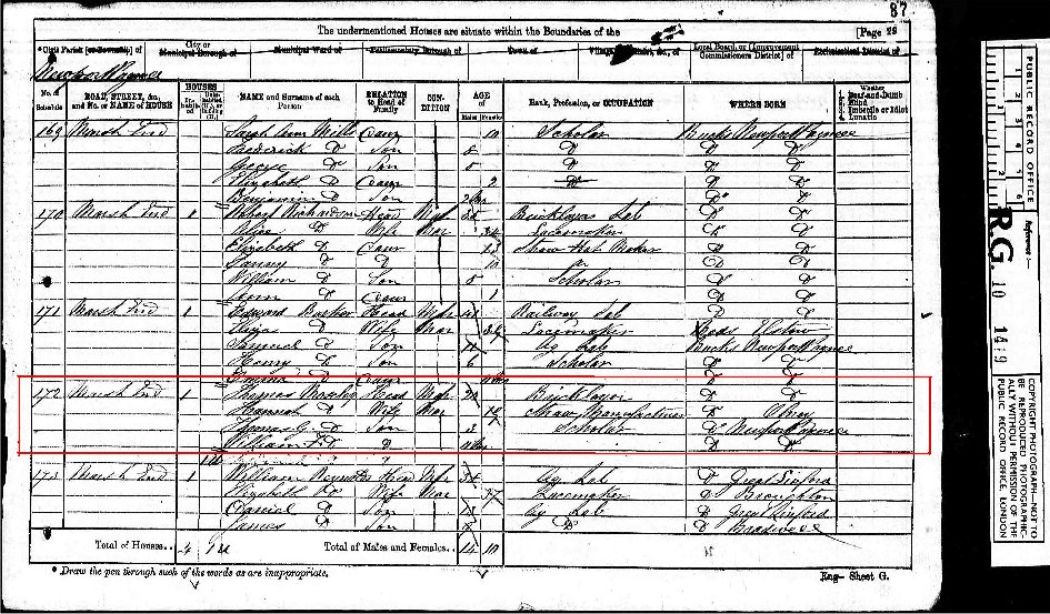 87
The undermentioned Houses are situate within the Boundaries of the [Page 25
*Civil Parish [or Township] of City or Municipal Borough of Municipal Ward of Parliamentary Borough of Town of Village of Local Board, or [Improvement Commissioners District] of Ecclesiastical District of
Newport Pagnell
No. of Schedule ROAD, STREET, &c., and No. or NAME of HOUSE HOUSES NAME and Surname of each Person RELATION to Head of Family CON-DITION AGE of Males Females Rank, Profession, or OCCUPATION WHERE BORN Whether Deaf-and-Dumb Blind Imbecile or Idiot Lunatic
169 Marsh End Sarah Ann Mills Daur 10 Scholar Bucks Newport Pagnell
Frederick D Son 8 D D D
George D Son 5 D D D
Elizabeth D Daur 2 D D D
Benjamin D Son D D
170 Marsh End 1 Robert Richardson Head Mar Bricklayers Lab D D
D Wife Mar 34 Lacemaker D D
Elizabeth D Daur 13 Straw Hat Maker D D
Fanny D D D D
William D Son 5 Scholar D D
D Daur 1 D D
171 Marsh End 1 Edward Barker Head Mar 41 Railway Lab D D
Eliza D Wife Mar Lacemaker Beds Elstow
Samuel D Son 11 Ag Lab Bucks Newport Pagnell
Henry D Son 6 Scholar D D
Emma D Daur D D
172 Marsh End 1 Thomas Head Mar Bricklayor D D
Hannah D Wife Mar Straw Manufacturer D Olney
Thomas G. D Son 3 Scholar D Newport Pagnell
William F. D D D D
173 Marsh End 1 William Head Mar Ag Lab D Great Linford
Elizabeth D Wife Mar 37 Lacemaker D Broughton
Daniel D Son 13 Ag Lab D Great Linford
James D Son D D Bradwell
Total of Houses.. 4 Total of Males and Females.. 15 10
* Draw the pen through such of the words as are inappropriate.
Eng— Sheet G.
PUBLIC RECORD OFFICE
1 2 3 4 5 6
Reference :—
R.G. 10 1419
COPYRIGHT PHOTOGRAPH—NOT TO BE REPRODUCED PHOTOGRAPHICALLY WITHOUT PERMISSION OF THE PUBLIC RECORD OFFICE, LONDON